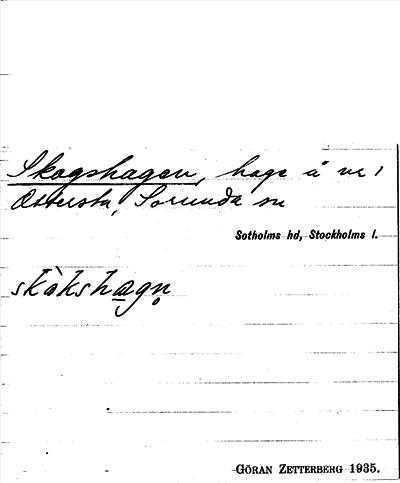 Skogshagen, hage å nr 1
Ottersta, Sorunda sn
Sotholms hd, Stockholms l.
skàkshagn̥
GÖRAN ZETTERBERG 1935.